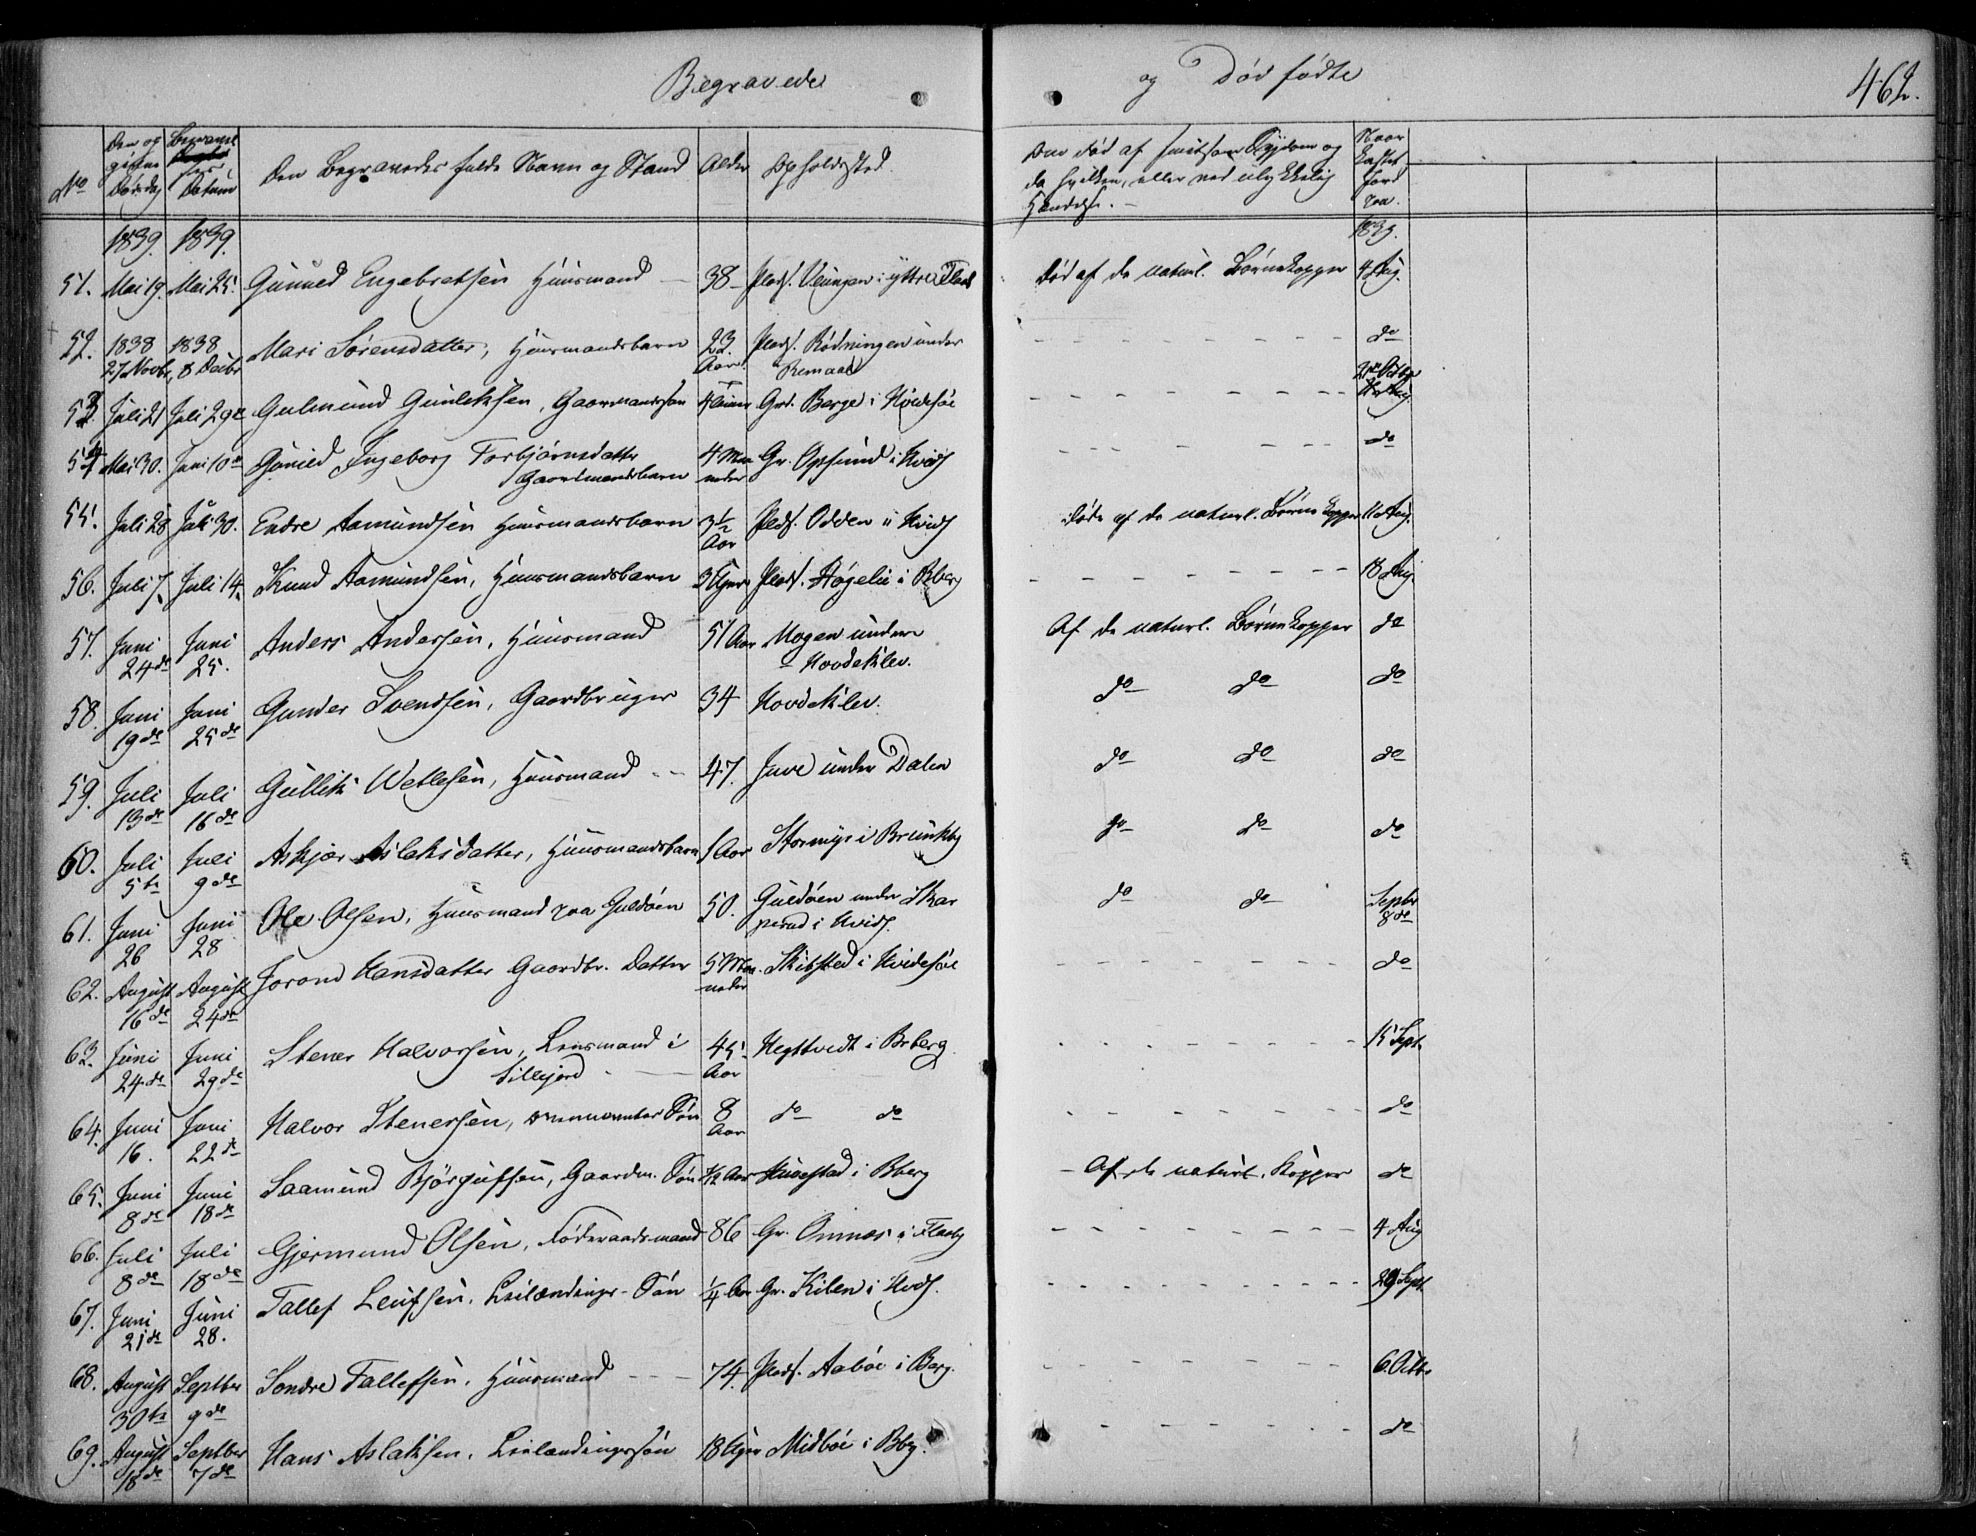 Begravede og Dødfødte 462.
No Den og givne Dødsdag Begravelses Datum Den Begravedes fulde Navn og Stand Alder Opholdssted. Om død af smitsom Sygdom og da hvilken, eller ved ulykkelig Hændelse. Naar Kastet Jord paa.
1839. 1839. 1839.
51. Mai 19. Mai 25. Gunued Engebretsen Huusmand 38 Plads. i yttre Død af de naturl. Børnekopper 4 Aug.
52. 1838 27 Novbr, 1838 8 Decbr Mari Sørensdatter, Huusmandsbarn 23 Aar. Plads. Rødningen under Remaae do
53. Juli 21 Juli 29de Gulmund Gunleksen, Gaardmandssøn Grd. Berge i Hvidesøe
54. Mai 30. Juni 10de Gunild Ingeborg Torbjørnsdatter Gaardmandsbarn 4 Maaneder Gr. Opsund i Hvids do
55. Juli 28 Juli 30. Endre Aamundsen Huusmandsbarn 3½ Aar Plads. Odden i Hvids Døde af de naturl. Børnekopper 11 Aug.
56. Juli 7. Juli 14. Knud Aamundsen, Huusmandsbarn 3 Uger Plads. Høgelie i Bberg 18 Aug
57. Juni 24de Juni 25. Anders Andersen, Huusmand 51 Aar Mogen under Hovdeklev. Af de naturl. Børnekopper do
58. Juni 19de Juni 25de Gunder Svendsen, Gaardbruger 34 Hovdeklev. do do do
59. Juli 13de Juli 16de Gullik Wetlesen, Huusmand 47. Juve under Dalen do do do
60. Juli 5te Juli 9de Askjær Aslaksdatter, Huusmandsbarn 1 Aar Stormyr i Brunkbg do do do
61. Juni 26 Juni 28 Ole Olsen, Huusmand paa Guldøen 50. Guldøen under Skarperud i Hvids. do do Septbr 8de
62. August 16de August 24de Jorond Hansdatter Gaardbr. Datter 5 Maaneder Skibsted i Hvidesøe do
63. Juni 24de Juni 29de Stener Halvorsen, Lensmand i Sillejord 45 Aar Hegttvedt i Brberg 15 Sept.
64. Juni 16. Juni 22de Halvor Stenersen, ommeldter Søn 8 Aar do do do
65. Juni 8de Juni 18de Saamund Bjørgufsen, Gaardm. Søn ½ Aar Huvestad i Bberg Af de naturl. Kopper do
66. Juli 8de Juli 18de Gjermund Olsen, Føderaadsmand 86 Gr. Omnæs i Flaabg 4 Aug
67. Juni 21de Juni 28. Tallef Leufsen, Leilændings-Søn ¼ Aar Gr. Kilen i Hvds. 29 Sept
68. August 30te Septber 9de Sondre Tallefsen, Huusmand 74. Plads. Aabøe i Berg. 6 Octbr
69. August 18de Septber 7de Hans Aslaksen, Leilændingssøn 18 Uger Midbøe i Bbg. do